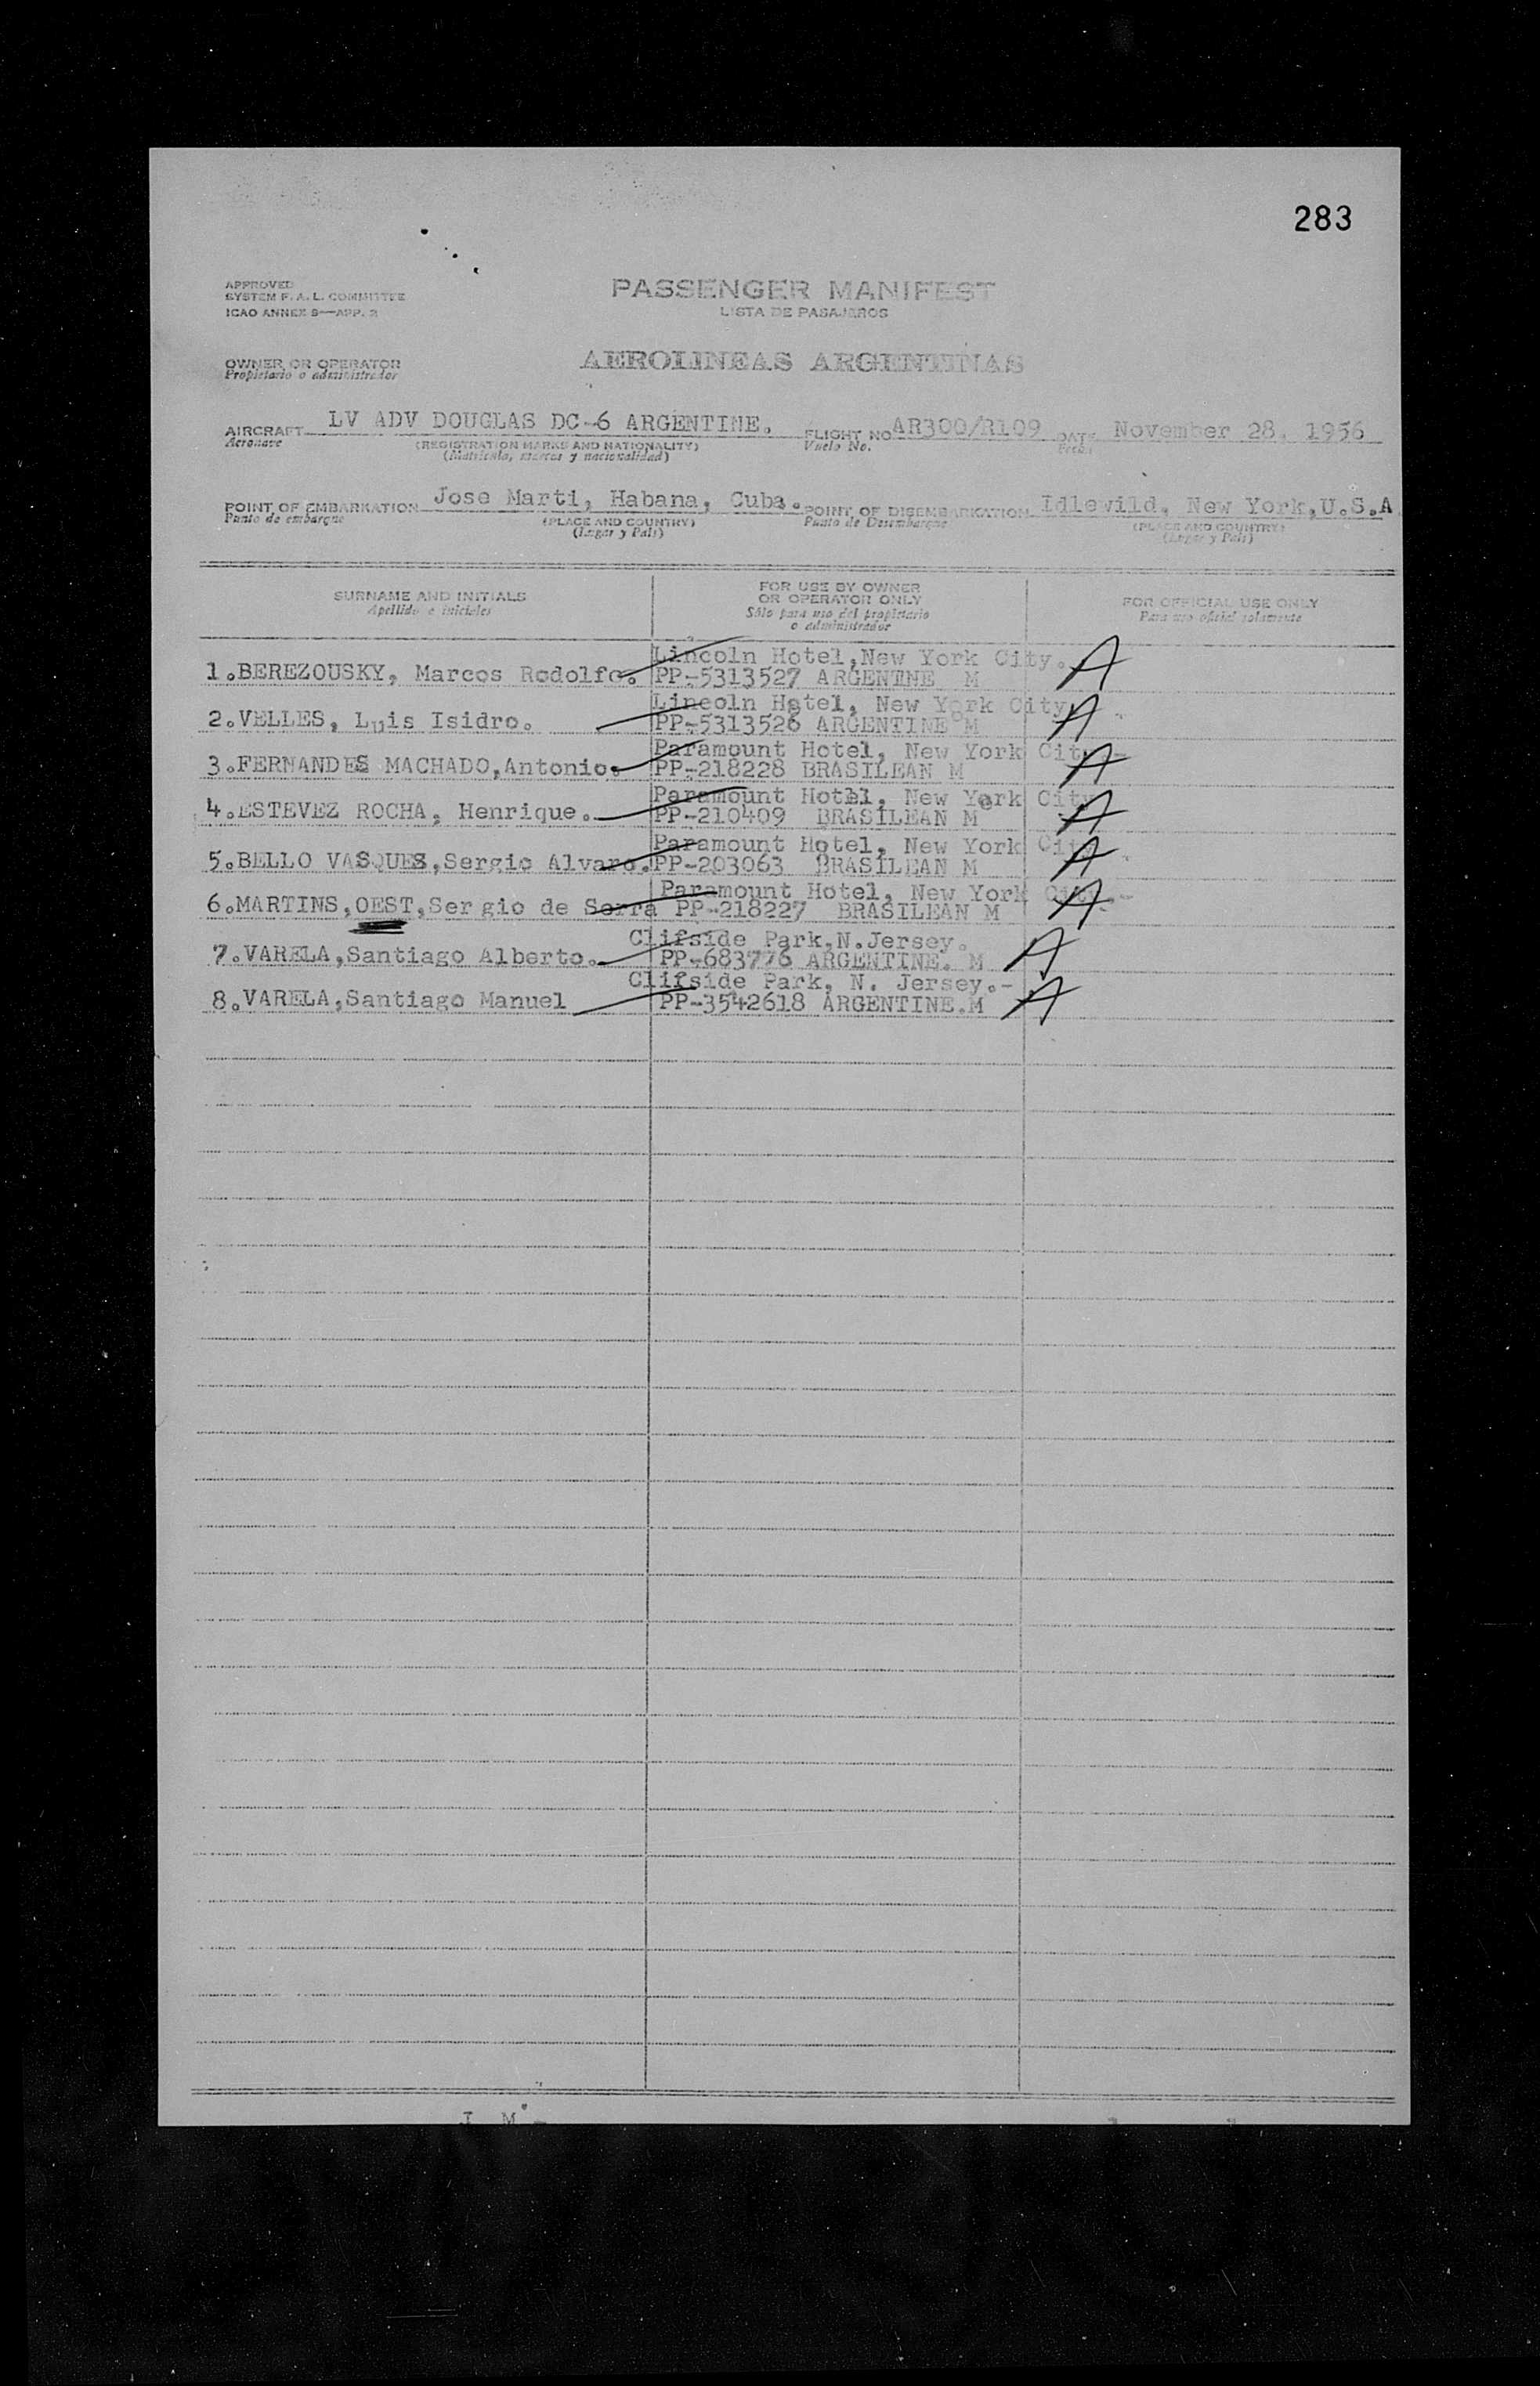 283
APPROVED
SYSTEM F. A. L. COMMITTEE
ICAO ANNEX 9—APP. 2
PASSENGER MANIFEST
LISTA DE PASAJEROS
OWNER OR OPERATOR
Propietario o administrador
AEROLINEAS ARGENTINAS
AIRCRAFT LV ADV DOUGLAS DC-6 ARGENTINE. FLIGHT NO AR300/R109 DATE November 28, 1956
Aeronave (REGISTRATION MARKS AND NATIONALITY) Vuelo No. Fecha
(Matrícula, marcas y nacionalidad)
POINT OF EMBARKATION Jose Marti, Habana, Cuba. POINT OF DISEMBARKATION Idlewild, New York,U.S.A
Punto de embarque (PLACE AND COUNTRY) Punto de Desembarque (PLACE AND COUNTRY)
(Lugar y País) (Lugar y País)
SURNAME AND INITIALS
Apellido e iniciales
FOR USE BY OWNER
OR OPERATOR ONLY
Sólo para uso del propietario
o administrador
FOR OFFICIAL USE ONLY
Para uso oficial solamente
Lincoln Hotel,New York City.
1.BEREZOUSKY, Marcos Rodolfo. PP-5313527 ARGENTINE M A
Lincoln Hotel, New York City
2.VELLES, Luis Isidro. PP-5313526 ARGENTINE M A
Paramount Hotel, New York City-
3.FERNANDES MACHADO,Antonio. PP-218228 BRASILEAN M A
Paramount Hotel, New York City
4.ESTEVEZ ROCHA, Henrique. PP-210409 BRASILEAN M A
Paramount Hotel, New York City
5.BELLO VASQUES,Sergio Alvaro. PP-203063 BRASILEAN M A
Paramount Hotel, New York City.-
6.MARTINS,OEST,Sergio de Serra PP-218227 BRASILEAN M A
Clifside Park,N.Jersey.
7.VARELA,Santiago Alberto. PP-683776 ARGENTINE. M A
Clifside Park, N. Jersey.-
8.VARELA,Santiago Manuel PP-3542618 ARGENTINE.M A